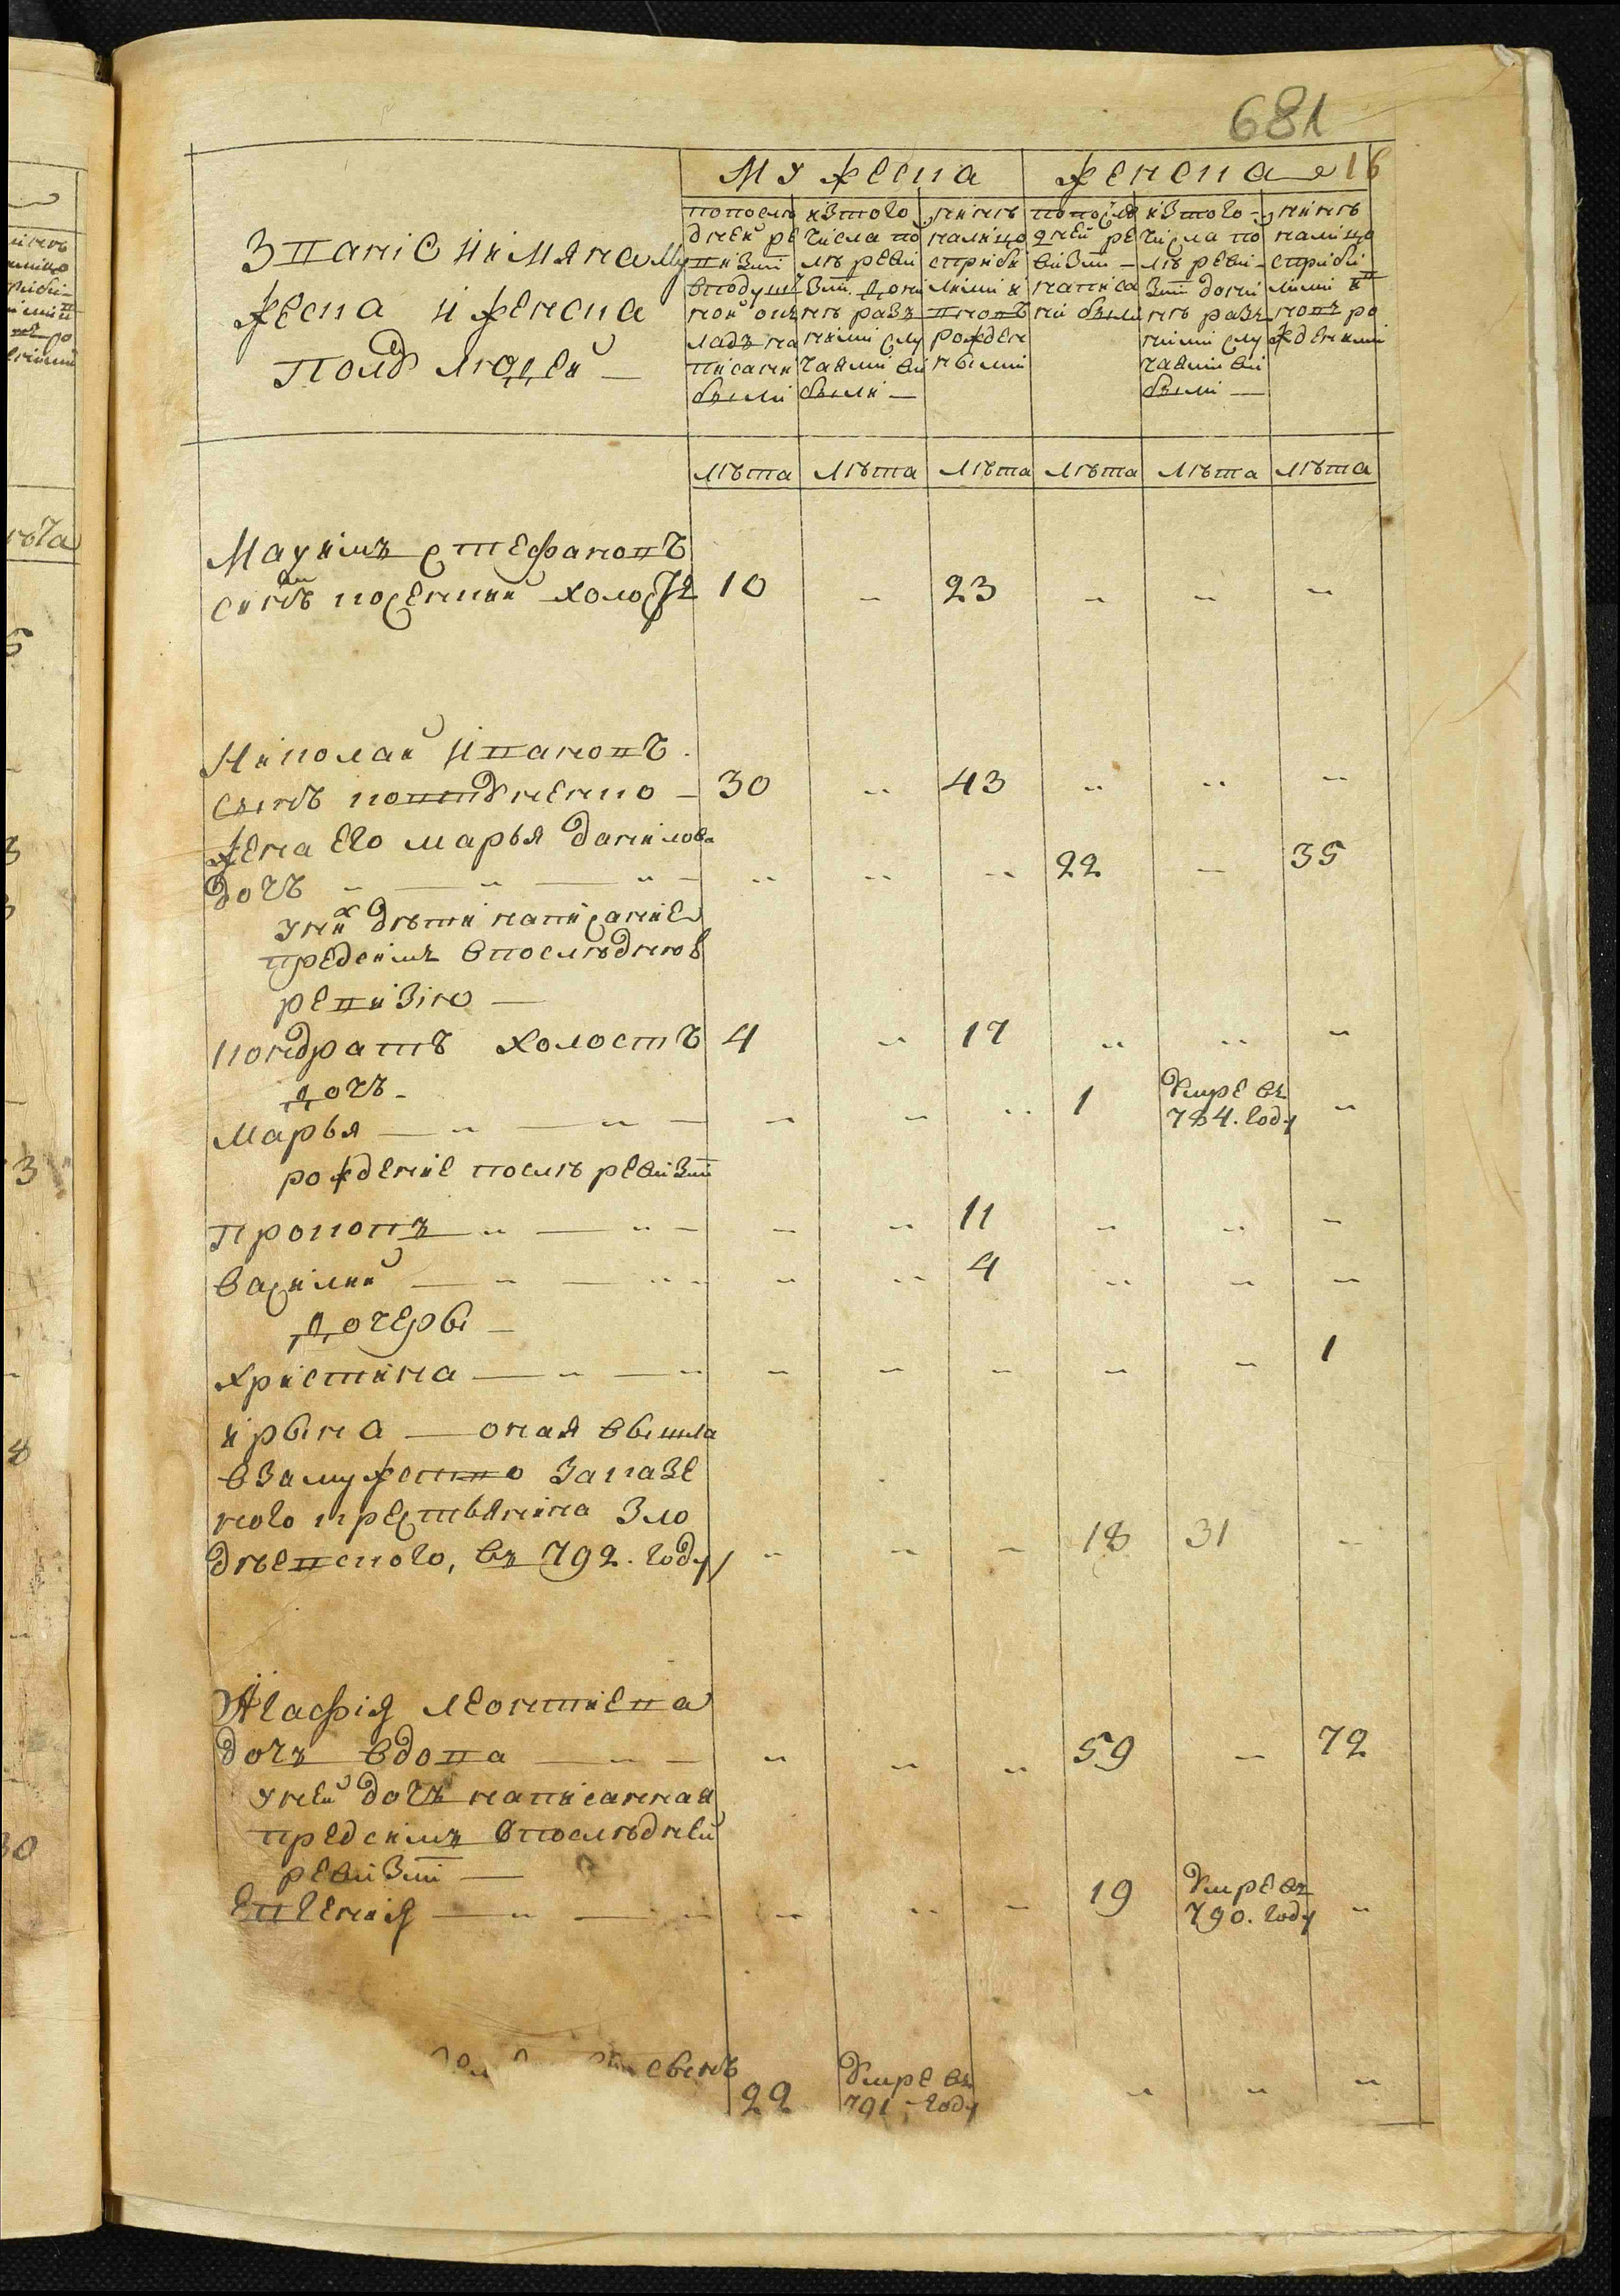 681
16
мужеска
женска
Званіе и имяна му
жеска и женска
полу людей
по после
дней ре
визіи
в подуш
ной окъ
ладъ на
писани
были
из того
числа по
лѣ реви
зіи до ни
нѣ разъ
ними слу
чаями ви
были
нинѣ
на лицо
с приби
лими и
вновь
рожден
ными
по послѣ
дней ре
визіи
написа
ни были
из того
числа по
лѣ реви
зіи до ни
нѣ разъ
ними слу
чаями ви
были
нинѣ
на лицо
с приби
лими и
новъ ро
жденими
лѣта лѣта лѣта лѣта лѣта лѣта
Макимъ Стефановъ
синъ Косенкии холостъ 10 23
Николай Ивановъ
сынъ Коптѣненко 30 43
жена его Марья Данилова
дочъ 22 35
у них дѣти написание
пред симъ в последнюю
ревизію
Кондратъ холостъ 4 17
дочъ
Марья 1 умре въ
784. году
рождение послѣ ревизіи
Прокопъ 11
Василий 4
дочеры
Христина 1
Ирына оная вышла
в замужство за казе
ного крестьянина Зло
дѣевского, въ 792. году 18 31
Агафия Леонтиева
дочъ вдова 59 72
у ней дочъ написанная
пред симъ в последней
ревизіи
Евгения 19 умре въ
790. году
сынъ
22 умре въ
791 году